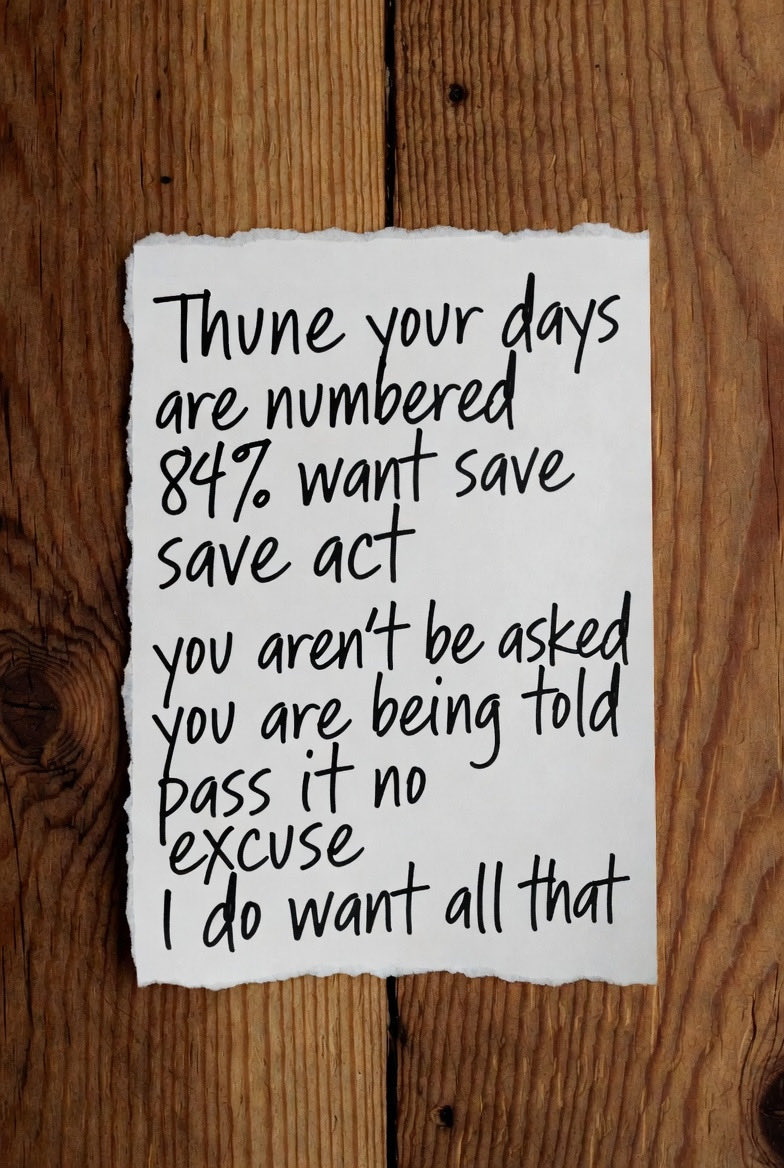 Thune your days
are numbered
84% want save
save act
you aren't be asked
you are being told
pass it no
excuse
I do want all that